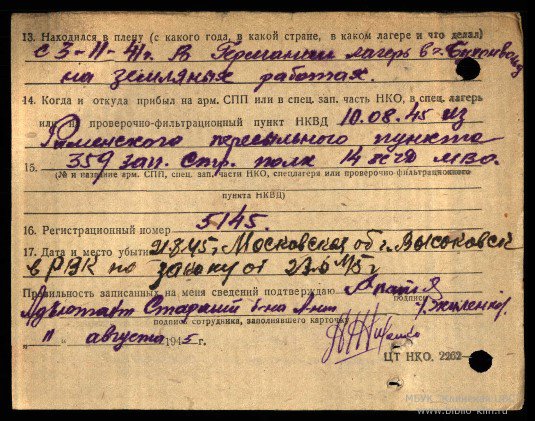 13. Находился в плену (с какого года, в какой стране, в каком лагере и что делал)
с 3-11-41г. В Германии лагерь в г.
на земляных работах.
14. Когда и откуда прибыл на арм. СПП или в спец. зап. часть НКО, в спец. лагерь
или на проверочно-фильтрационный пункт НКВД 10.08.45 из
Раменского пересыльного пункта
15. 359 зап. стр. полк 14 МВО.
(№ и название арм. СПП, спец. зап. части НКО, спецлагеря или проверочно-фильтрационного
пункта НКВД)
16. Регистрационный номер 5145.
17. Дата и место убытия 21.8.45г. Московская об г.
в РВК по закону от 23.6.45г
Правильность записанных на меня сведений подтверждаю
подпись
Адьютант Старший б-на Л-нт
подпись сотрудника, заполнявшего карточку
„11" августа 1945 г.
ЦТ НКО. 2262
МБУК "Клинская ЦБС"
www.biblio-klin.ru